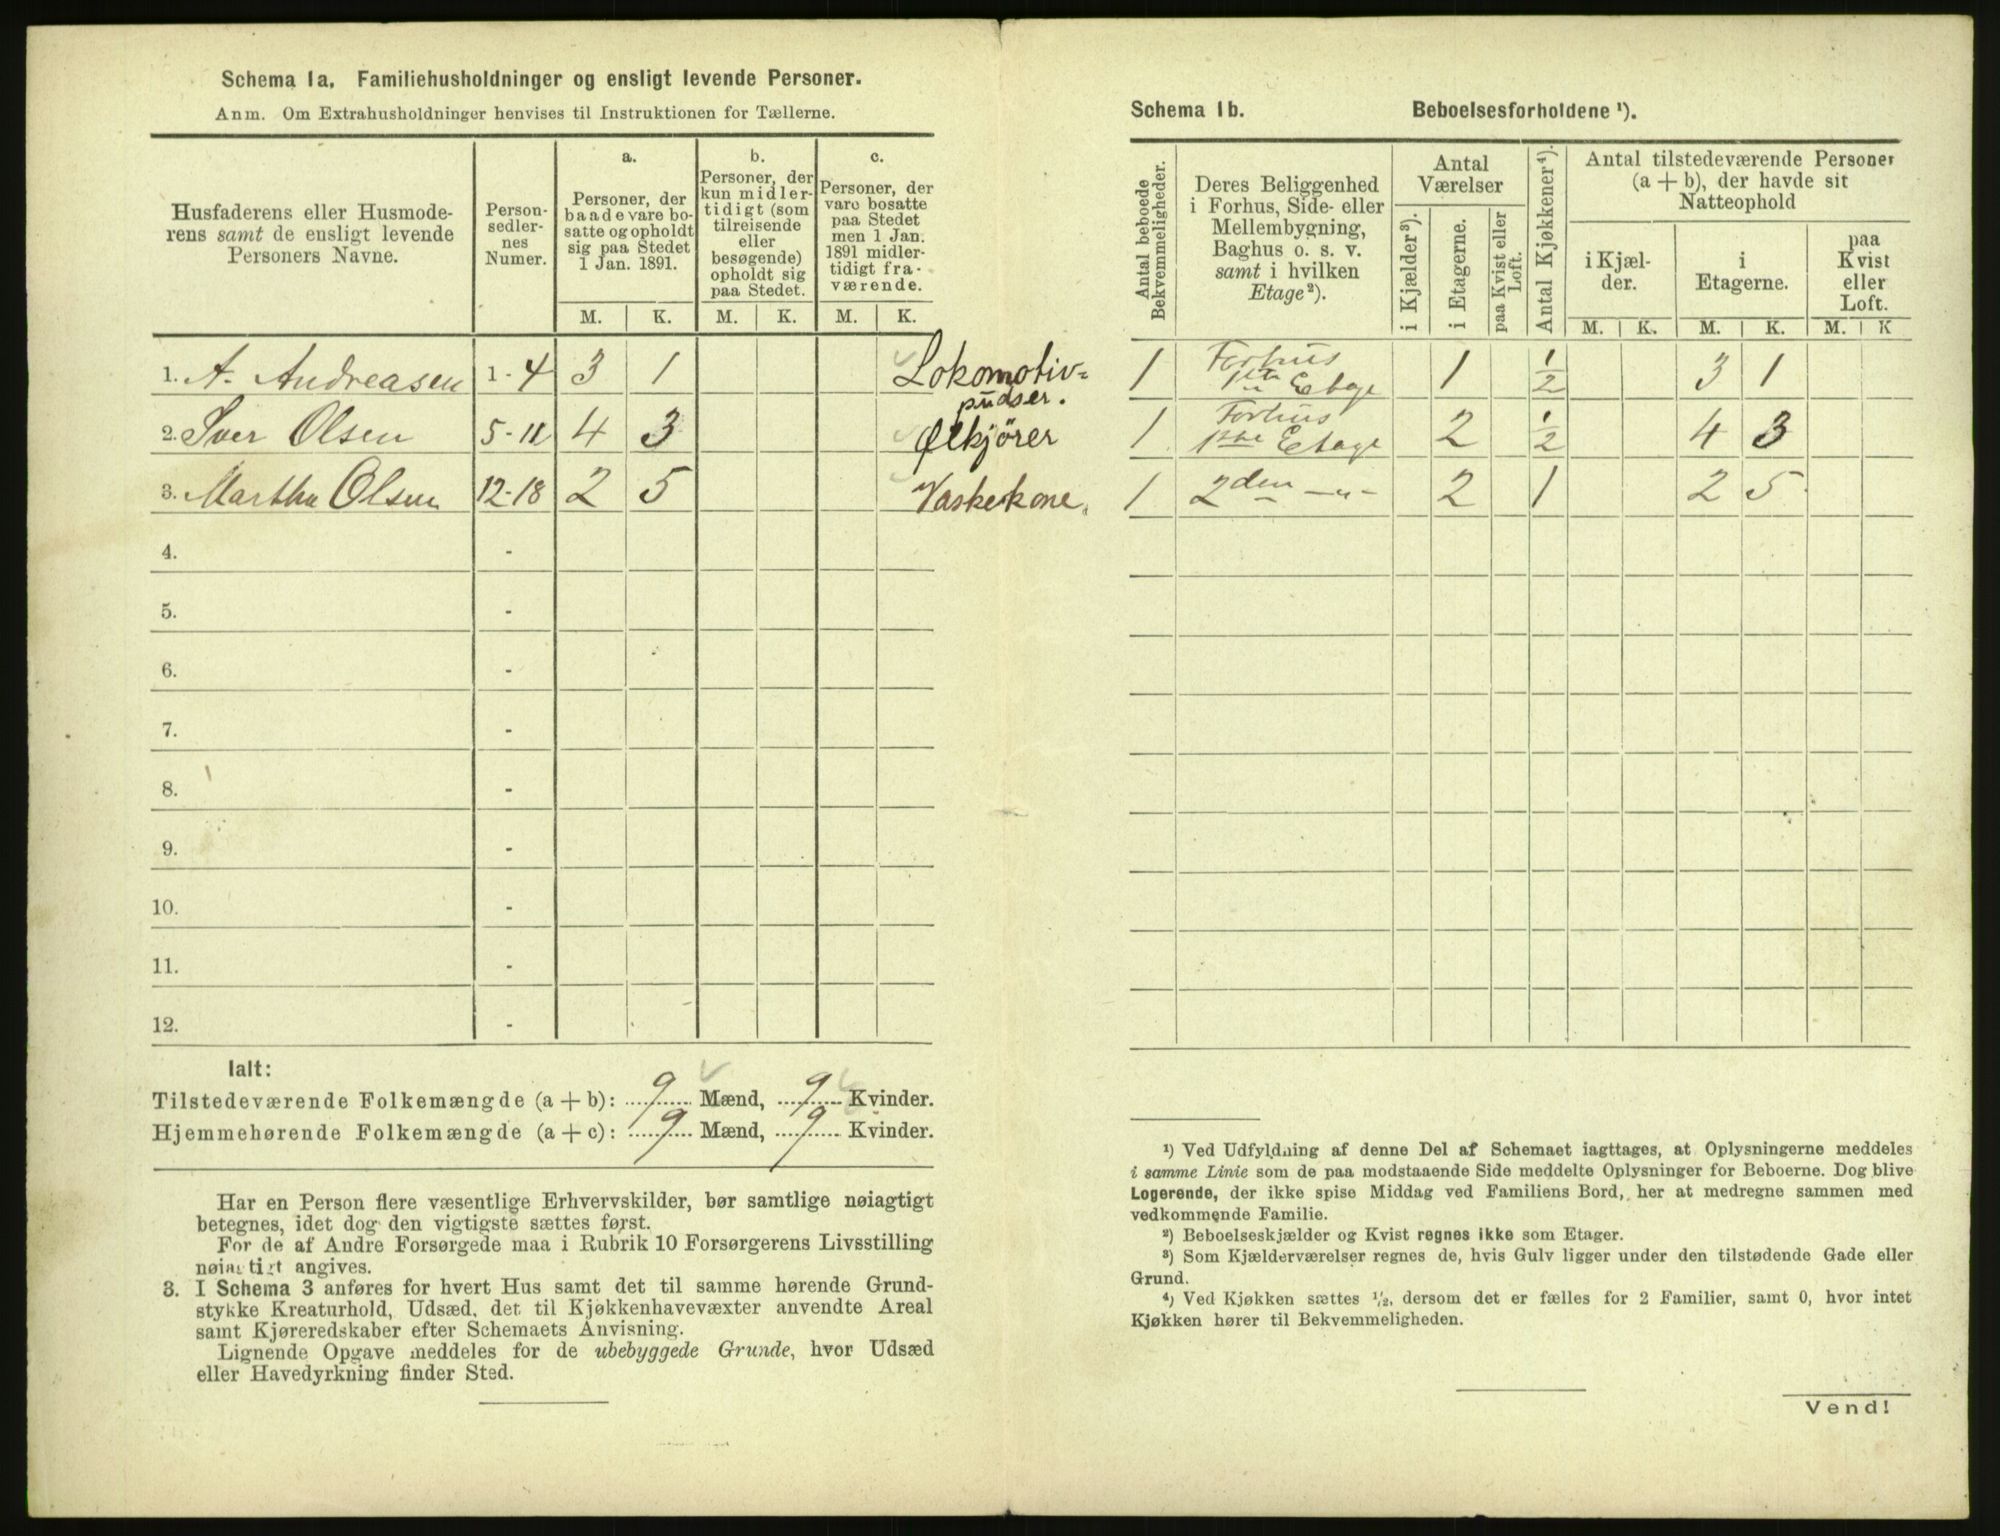 Schema Ia. Familiehusholdninger og ensligt levende Personer.
Anm. Om Extrahusholdninger henvises til Instruktionen for Tællerne.
Husfaderens eller Husmode-
rens samt de ensligt levende
Personers Navne.
Person-
sedler-
nes
Numer.
a.
Personer, der
baade vare bo-
satte og opholdt
sig paa Stedet
1 Jan. 1891.
b.
Personer, der
kun midler-
tidigt (som
tilreisende
eller
besøgende)
opholdt sig
paa Stedet.
c.
Personer, der
vare bosatte
paa Stedet
men 1 Jan.
1891 midler-
tidigt fra-
værende.
M. K. M. K. M. K.
1. A. Andreasen 1-4 3 1 Lokomotiv-
pudser.
2. Iver Olsen 5-11 4 3 Ølkjörer
3. Martha Olsen 12-18 2 5 Vaskekone.
4. -
5. -
6. -
7. -
8. -
9. -
10. -
11. -
12. -
Ialt:
Tilstedeværende Folkemængde (a + b): 9 Mænd, 9 Kvinder.
Hjemmehørende Folkemængde (a + c): 9 Mænd, 9 Kvinder.
Har en Person flere væsentlige Erhvervskilder, bør samtlige nøiagtigt
betegnes, idet dog den vigtigste sættes først.
For de af Andre Forsørgede maa i Rubrik 10 Forsørgerens Livsstilling
nøiagtigt angives.
3. I Schema 3 anføres for hvert Hus samt det til samme hørende Grund-
stykke Kreaturhold, Udsæd, det til Kjøkkenhavevæxter anvendte Areal
samt Kjøreredskaber efter Schemaets Anvisning.
Lignende Opgave meddeles for de ubebyggede Grunde, hvor Udsæd
eller Havedyrkning finder Sted.
Schema Ib. Beboelsesforholdene ¹).
Antal beboede
Bekvemmeligheder.
Deres Beliggenhed
i Forhus, Side- eller
Mellembygning,
Baghus o. s. v.
samt i hvilken
Etage²).
Antal
Værelser
i Kjælder³).
i Etagerne.
paa Kvist eller
Loft.
Antal Kjøkkener⁴).
Antal tilstedeværende Personer
(a + b), der havde sit
Natteophold
i Kjæl-
der.
i
Etagerne.
paa
Kvist
eller
Loft.
M. K. M. K. M. K
1 Forhus
1ste Etage 1 ½ 3 1
1 Forhus
1ste Etage 2 ½ 4 3
1 2den —„— 2 1 2 5
¹) Ved Udfyldning af denne Del af Schemaet iagttages, at Oplysningerne meddeles
i samme Linie som de paa modstaaende Side meddelte Oplysninger for Beboerne. Dog blive
Logerende, der ikke spise Middag ved Familiens Bord, her at medregne sammen med
vedkommende Familie.
²) Beboelseskjælder og Kvist regnes ikke som Etager.
³) Som Kjælderværelser regnes de, hvis Gulv ligger under den tilstødende Gade eller
Grund.
⁴) Ved Kjøkken sættes ½, dersom det er fælles for 2 Familier, samt 0, hvor intet
Kjøkken hører til Bekvemmeligheden.
Vend!